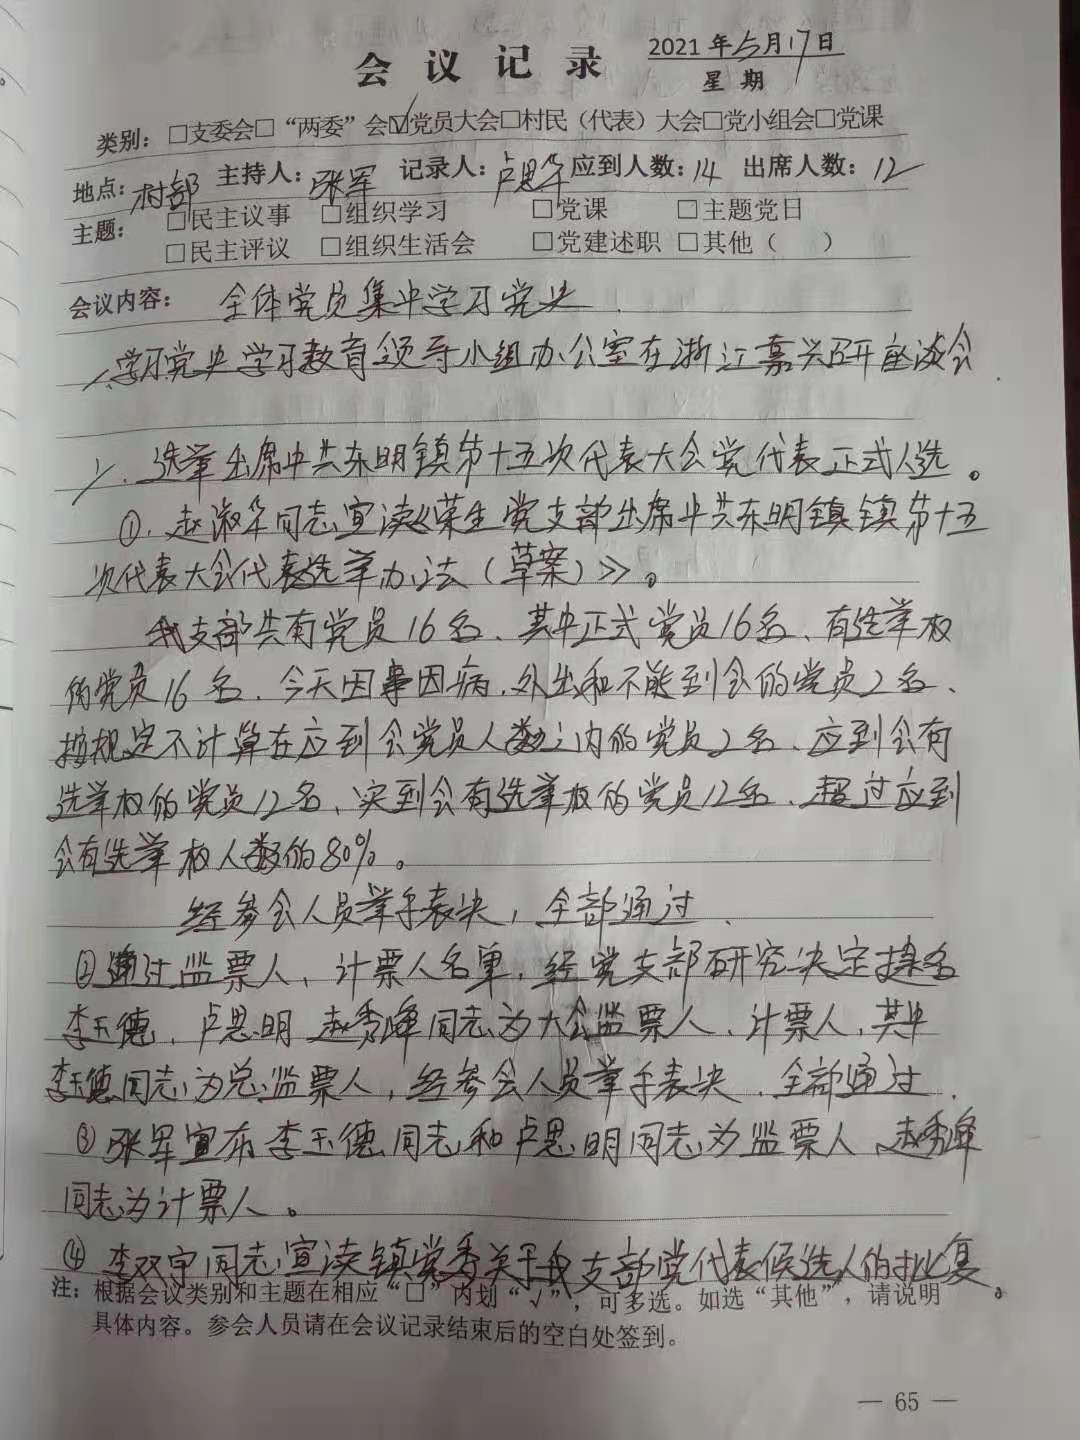 会议记录
2021年5月17日
星期
类别：□支委会□“两委”会☑党员大会□村民（代表）大会□党小组会□党课
地点：村部 主持人：张军 记录人：卢思华 应到人数：14 出席人数：12
主题：□民主议事 □组织学习 □党课 □主题党日
□民主评议 □组织生活会 □党建述职 □其他（ ）
会议内容： 全体党员集中学习党史.
1.学习党史学习教育领导小组办公室在浙江嘉兴召开座谈会.
2.选举出席中共东明镇第十五次代表大会党代表正式人选。
①.赵淑华同志宣读《荣生党支部出席中共东明镇镇第十五
次代表大会代表选举办法（草案）》。
我支部共有党员16名、其中正式党员16名、有选举权
的党员16名.今天因事因病.外出和不能到会的党员2名、
按规定不计算在应到会党员人数之内的党员2名、应到会有
选举权的党员12名、实到会有选举权的党员12名.超过应到
会有选举权人数的80%。
经参会人员举手表决，全部通过.
②通过监票人、计票人名单，经党支部研究决定提名
李玉德、卢思明 赵秀峰同志为大会监票人、计票人，其中
李玉德同志为总监票人，经参会人员举手表决.全部通过.
③张军宣布李玉德同志和卢思明同志为监票人、赵秀峰
同志为计票人。
④李双宇同志宣读镇党委关于我支部党代表候选人的批复。
注：根据会议类别和主题在相应“□”内划“√”，可多选。如选“其他”，请说明
具体内容。参会人员请在会议记录结束后的空白处签到。
— 65 —